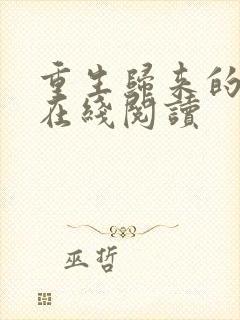 重生歸来的
在綫閱讀
巫哲